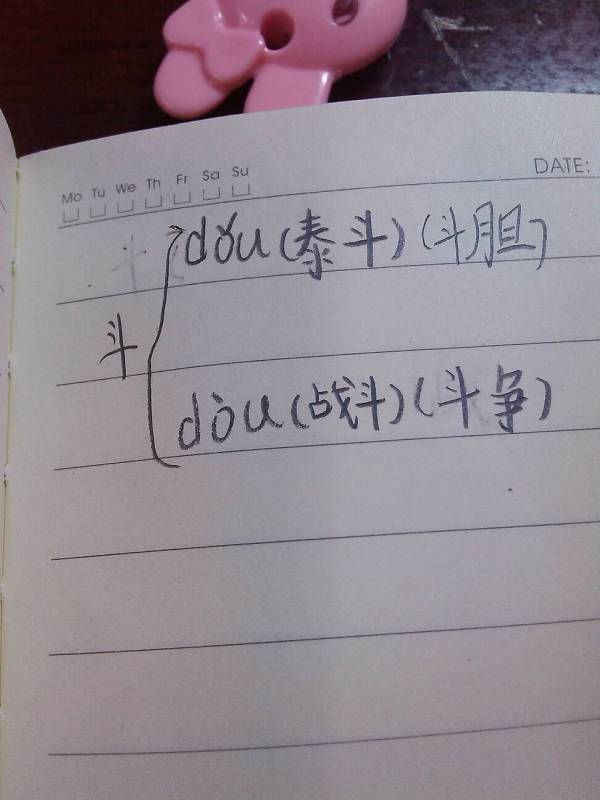 Mo Tu We Th Fr Sa Su
DATE:
dǒu(泰斗)(斗胆)
斗
dòu(战斗)(斗争)